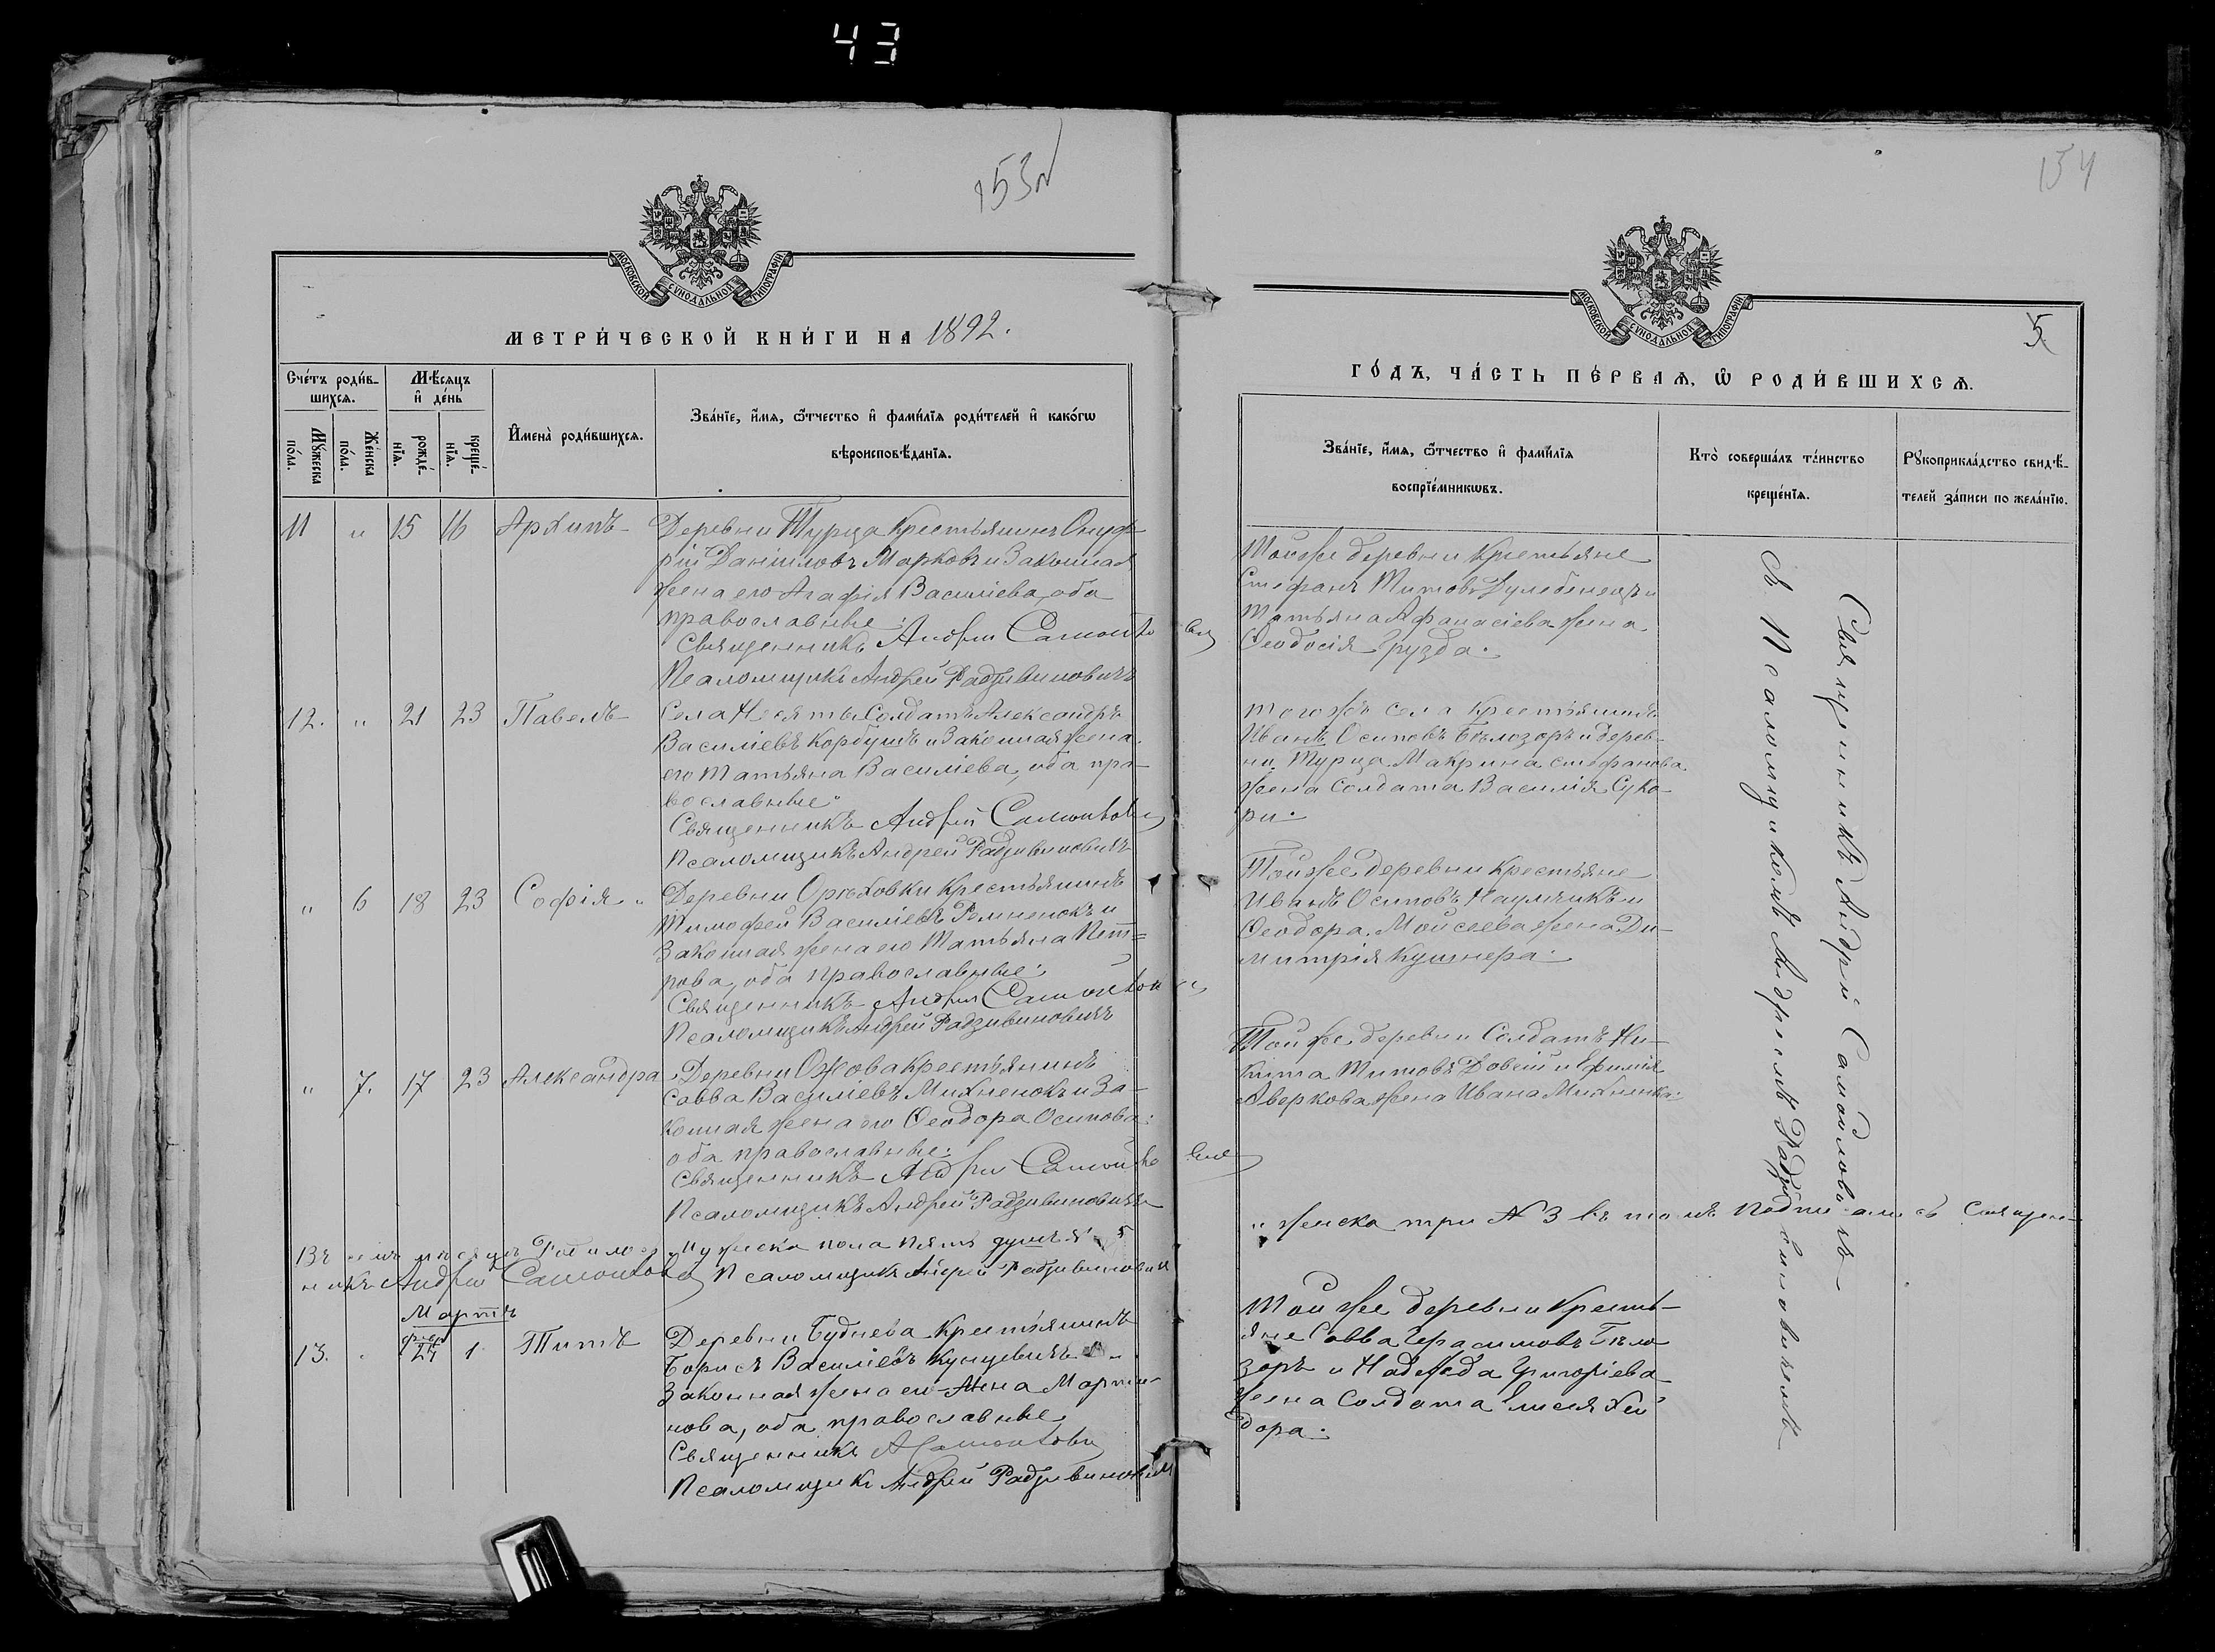 43
153
МОСКОВСКОЙ СѴНОДАЛЬНОЙ ТИПОГРАФІИ
МЕТРИ́ЧЕСКОЙ КНИ́ГИ НА 1892.
Сче́тъ роди́в-
шихсѧ.
Мѣ́сѧцъ
и҆ де́нь
Мꙋ́жеска
по́ла.
Же́нска
по́ла.
рожде́-
нїѧ.
креще́-
нїѧ.
И҆мена̀ роди́вшихсѧ.
Зва́нїе, и҆́мѧ, ѻ҆́тчество и҆ фами́лїѧ роди́телей и҆ како́гѡ
вѣроисповѣ́данїѧ.
11 " 15 16 Архипъ
Деревни Турца Крестьянинъ Онуф-
рій Даніиловъ Марковъ и законная
жена его Агафія Василіева, оба
православные.
Священникъ Андрей Самойловъ
Псаломщикъ Андрей Радзивиновичъ
12. " 21 23 Павелъ
Села Несяты Солдатъ Александръ
Василіевъ Корбушъ и законная жена
его Татьяна Василіева, оба пра-
вославные
Священникъ Андрей Самойловъ
Псаломщикъ Андрей Радзивиновичъ
" 6 18 23 Софія
Деревни Орѣховки Крестьянинъ
Тимофей Василіевъ Ременокъ и
законная жена его Татьяна Пет=
рова, оба православные.
Священникъ Андрей Самойловъ
Псаломщикъ Андрей Радзивиновичъ
" 7. 17 23 Александра
Деревни Ожова крестьянинъ
Савва Василіевъ Михненокъ и за-
конная жена его Феодора Осипова.
оба православные.
Священникъ Андрей Самойловъ
Псаломщикъ Андрей Радзивиновичъ
Въ мѣсяцѣ Родилось мужеска пола пять душъ № 5
никъ Андрей Самойловъ Псаломщикъ Андрей Радзивиновичъ
Мартъ
13. 1 Титъ
Деревни Буднева Крестьянинъ
Борисъ Василіевъ Кунцевичъ и
законная жена его Анна Марти-
нова, оба православные
Священникъ А Самойловъ
Псаломщикъ Андрей Радзивиновичъ
154
МОСКОВСКОЙ СѴНОДАЛЬНОЙ ТИПОГРАФІИ
5
ГО́ДЪ, ЧА́СТЬ ПЕ́РВАѦ, Ѡ҆ РОДИ́ВШИХСѦ.
Зва́нїе, и҆́мѧ, ѻ҆́тчество и҆ фами́лїѧ
воспрїе́мникѡвъ.
Кто̀ соверша́лъ та́инство
креще́нїѧ.
Рꙋкоприкла́дство свидѣ́-
телей за́писи по жела́нїю.
Той же деревни Крестьяне
Стефанъ Титовъ Дулебенецъ и
Татьяна Афанасіева жена
Феодосія Грузда.
Того же села Крестьянинъ
Иванъ Осиповъ Бѣлозоръ и дерев-
ни Турца Макрина Стефанова
жена солдата Василія Суко-
ри.
Той же деревни Крестьяне
Иванъ Осиповъ Наумчикъ и
Феодора Моисеева жена Ди-
митрія Кушнера.
Той же деревни Солдатъ Ни-
кита Титовъ Довгій и Ефимія
Аверкова жена Ивана Михненка.
" женска три № 3 въ томъ подписались Священ-
Той же деревни Кресть-
яне Савва Герасимовъ Бѣло
зоръ и Надежда Григоріева
жена Солдата
дора.
Священникъ Андрей Самойловъ
съ Псаломщикомъ Андреемъ Радзивиновичемъ